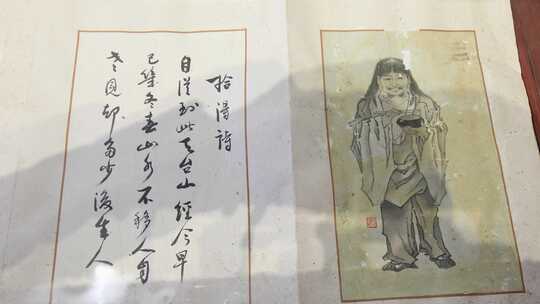 拾得诗
自从到此天台山经今早
已几冬春山水不移人自
老见却多少後生人